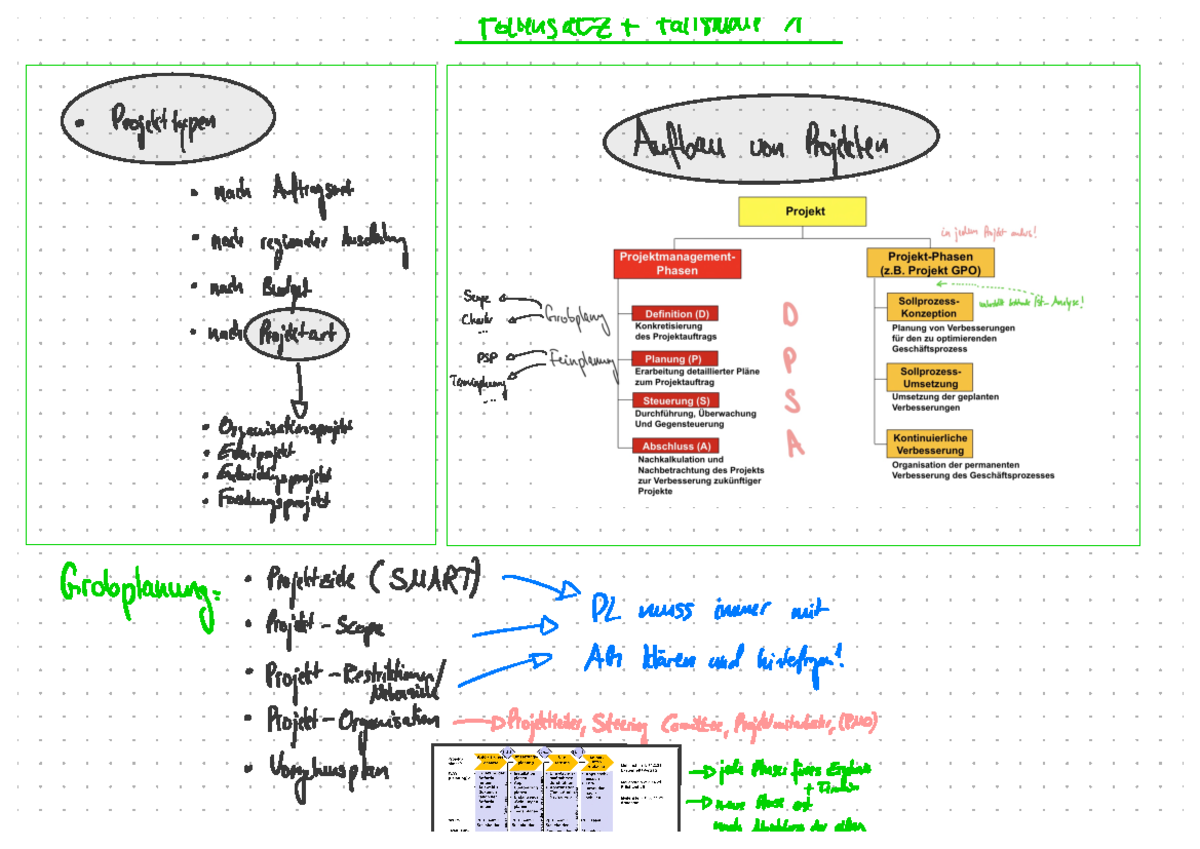 Foliensatz + Fallstudie 1
• Projekttypen
• nach Auftragsart
• nach regionaler Ausdehnung
• nach Budget
• nach Projektart
• Organisationsprojekt
• Eventprojekt
• Entwicklungsprojekt
• Forschungsprojekt
Aufbau von Projekten
Projekt
in jedem Projekt anders!
Projektmanagement-
Phasen
Projekt-Phasen
(z.B. Projekt GPO)
Ist-Analyse!
Scope
Charter
...
Grobplanung
Definition (D)
Konkretisierung
des Projektauftrags
D
PSP
Terminplanung
...
Feinplanung
Planung (P)
Erarbeitung detaillierter Pläne
zum Projektauftrag
P
Steuerung (S)
Durchführung, Überwachung
und Gegensteuerung
S
Abschluss (A)
Nachkalkulation und
Nachbetrachtung des Projekts
zur Verbesserung zukünftiger
Projekte
A
Sollprozess-
Konzeption
Planung von Verbesserungen
für den zu optimierenden
Geschäftsprozess
Sollprozess-
Umsetzung
Umsetzung der geplanten
Verbesserungen
Kontinuierliche
Verbesserung
Organisation der permanenten
Verbesserung des Geschäftsprozesses
Grobplanung:
• Projektziele (SMART)
• Projekt-Scope
• Projekt-Restriktionen/
• Projekt-Organisation
• Vorgehensplan
PL muss immer mit
AG klären und hinterfragen!
Projektleiter, Steering Comittee, Projektmitarbeiter, (PMO)
jede Phase fürs Ergebnis
+ Termin
neue Phase erst
nach Abschluss der alten